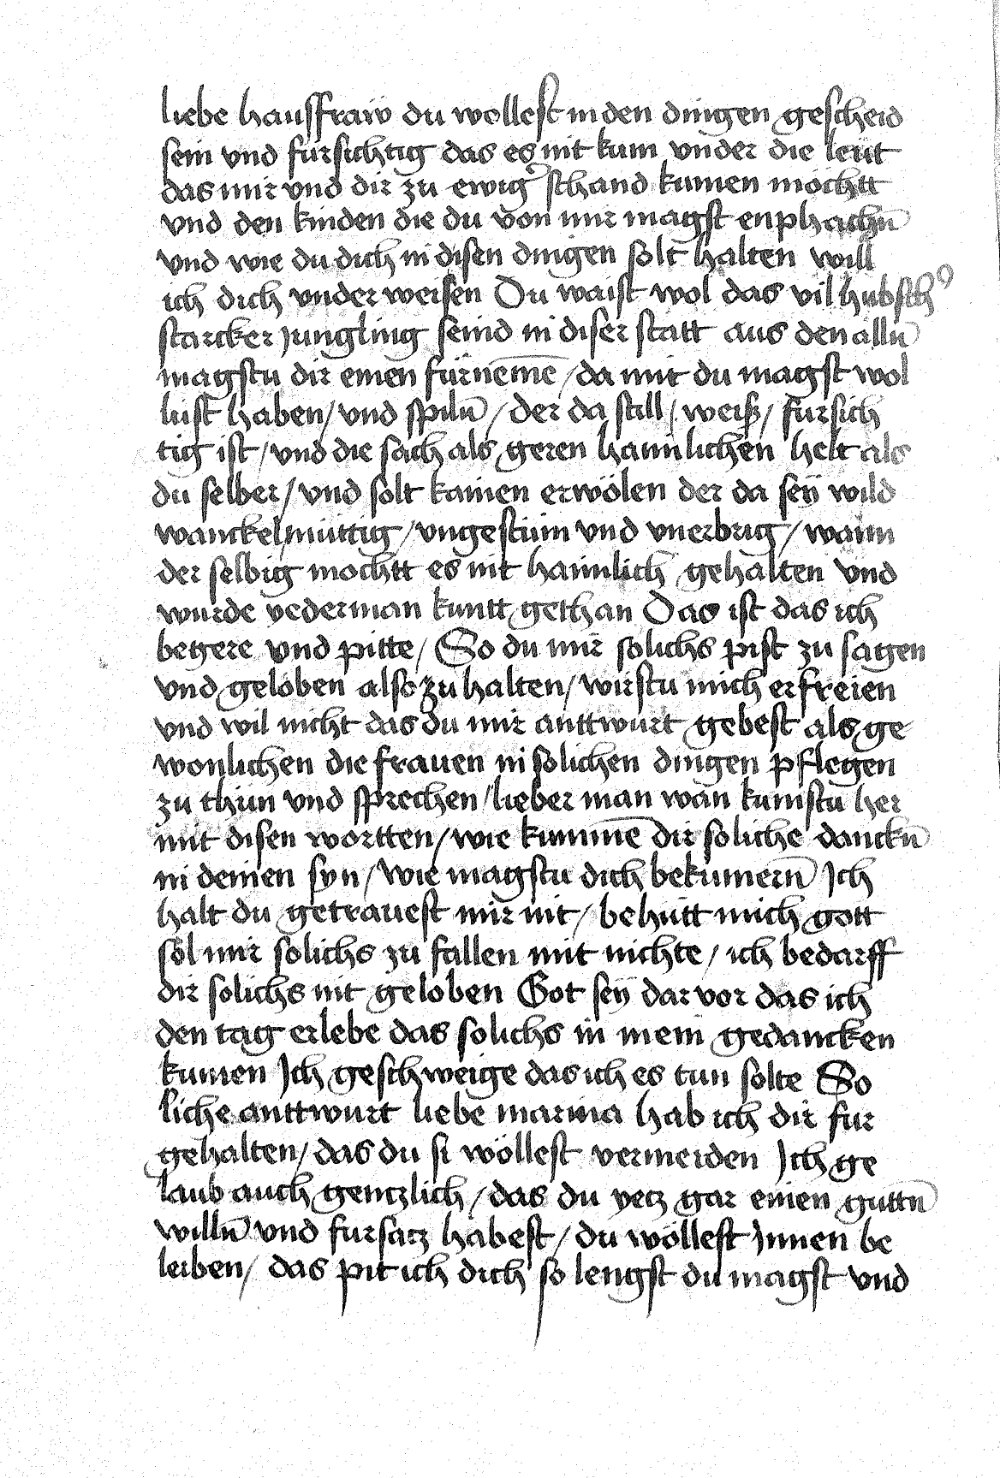 liebe hausffraw du wollest in den dingen gescheid
sein vnd fursichtig das es nit kum vnder die leut
das mir vnd dir zu ewigr schand kumen möchtt
vnd den kinden die du von mir magst enphachn̄
vnd wie du dich in disen dingen solt halten will
ich dich vnderweisen Du waist wol das vil hubsch⁹
starcker jungling seind in diser statt aus den alln̄
magstu dir einen fürneme̅ / da mit du magst wol
lust haben / vnd spiln̄ / der da still / weiß / fürsich
tig ist / vnd die sach als geren haimlichen helt als
du selber / vnd solt kainen erwölen der da seÿ wild
wanckelmüttig / vngestüm vnd vnerbrig / wann
der selbig mochtt es nit haimlich gehalten vnd
wurde yederman kuntt gethan Das ist das ich
begere vnd pitte / So du mir solichs pist zu sagen
vnd geloben also zu halten / wirstu mich erfreien
vnd wil nicht das du mir anttwurt gebest als ge
wonlichen die frauen in solichen dingen pflegen
zu thun vnd sprechen / lieber man wan kumstu her
mit disen wortten / wie kumme̅ dir soliche danckn̄
in deinen syn / wie magstu dich bekumern̄ Ich
halt du getrauest mir nit / behütt mich gott
sol mir solichs zu fallen mit nichte / ich bedarff
dir solichs nit geloben Got seÿ dar vor das ich
den tag erlebe das solichs in mein gedancken
kumen Ich geschweige das ich es tun solte So
liche anttwurt liebe marina hab ich dir fur
gehalten / das du si wöllest vermeiden Ich ge
laub auch gentzlich / das du yetz gar einen guttn̄
willn̄ vnd fursatz habest / du wöllest Innen be
leiben / das pit ich dich so lengst du magst vnd